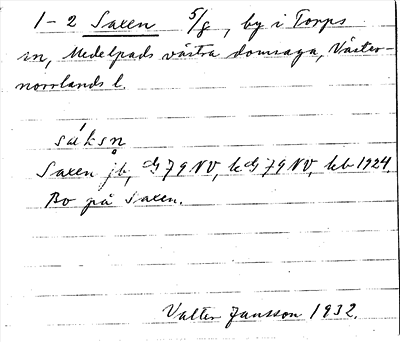 1-2 Saxen 5/8, by i Torps
sn, Medelpads västra domsaga, Väster-
norrlands l.
sáksn̥
Saxen jb, G 79 NV, kG 79 NV, kb 1924.
Bo på Saxen.
Valter Jansson 1932.